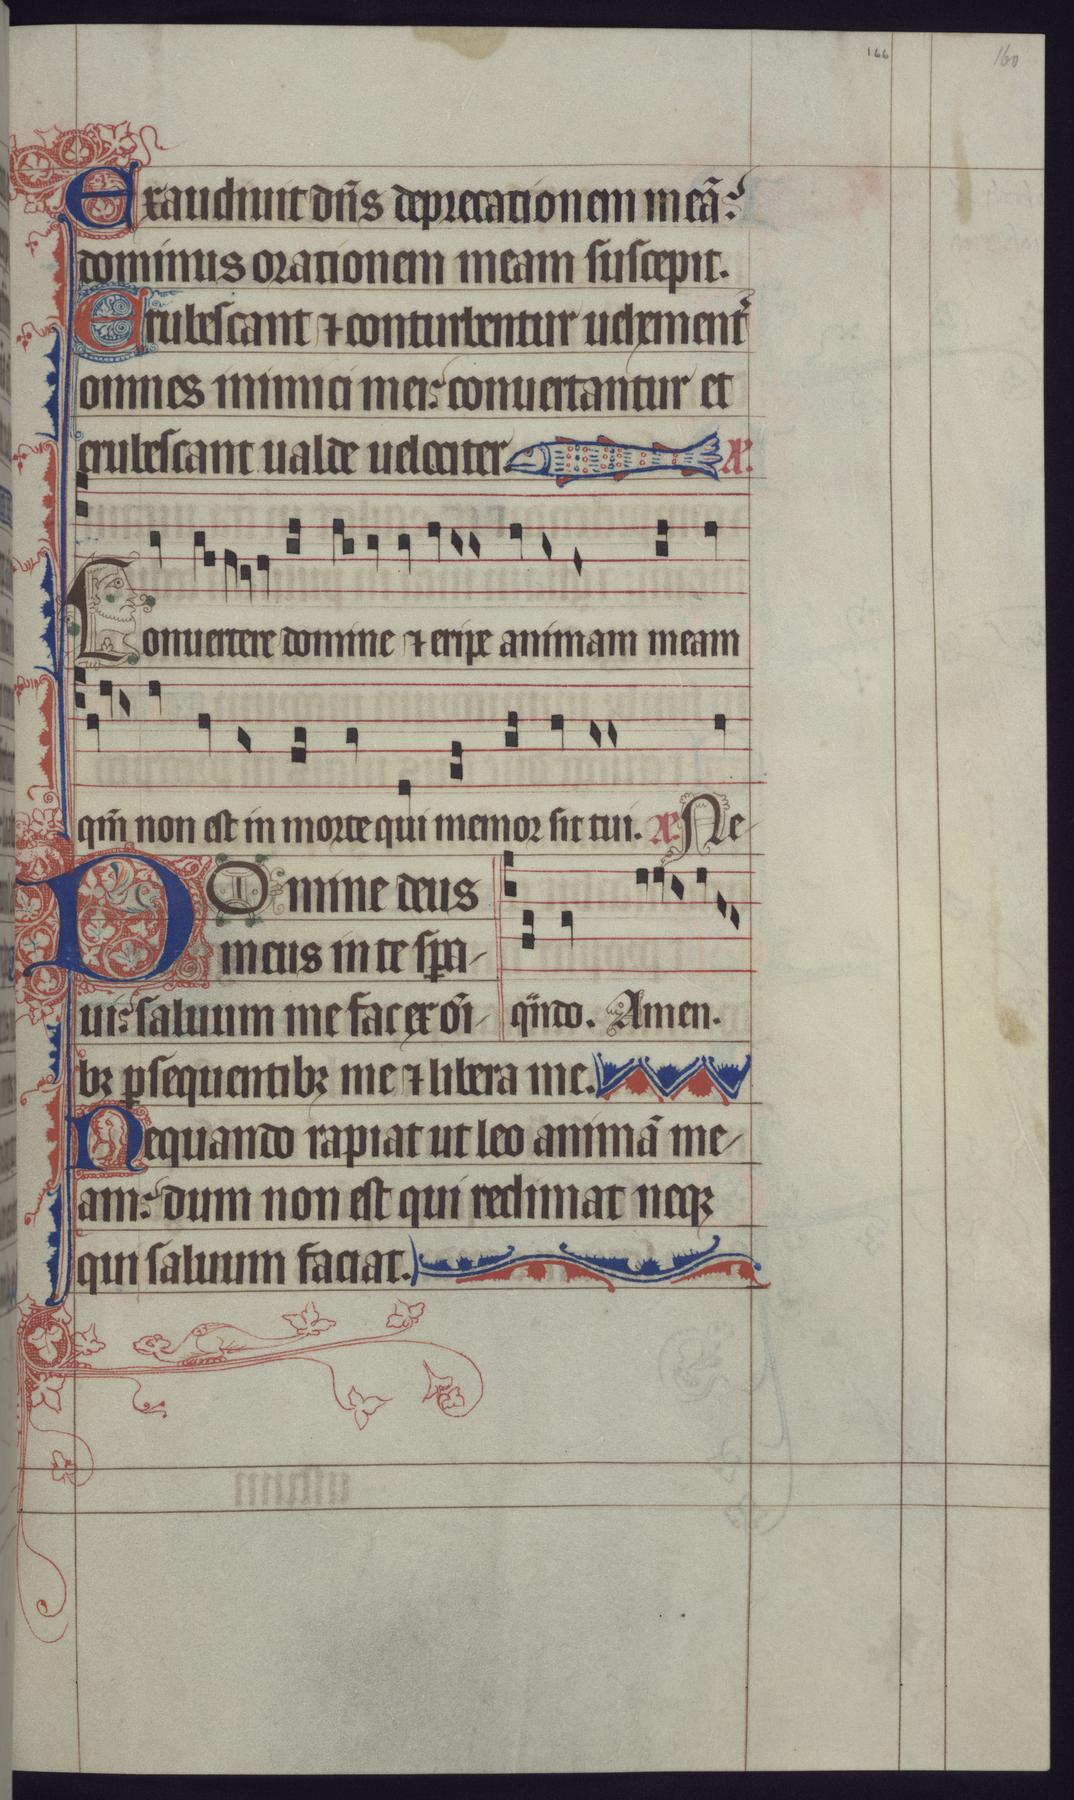 166
160
Exaudiuit dn̄s deprecationem meā:
dominus orationem meam suscepit.
Erubescant ⁊ conturbentur uehement᷑
omnes inimici mei: conuertantur et
erubescant ualde uelociter. Æ.
Conuertere domine ⁊ eripe animam meam
qm̄ non est in morte qui memor sit tui. Æ Ne-
DOmine deus
meus in te spa-
ui: saluum me fac ex om̄i- qn̄do. Amen.
bꝫ ꝑsequentibꝫ me ⁊ libera me.
Nequando rapiat ut leo animā me-
am: dum non est qui redimat neqꝫ
qui saluum faciat.